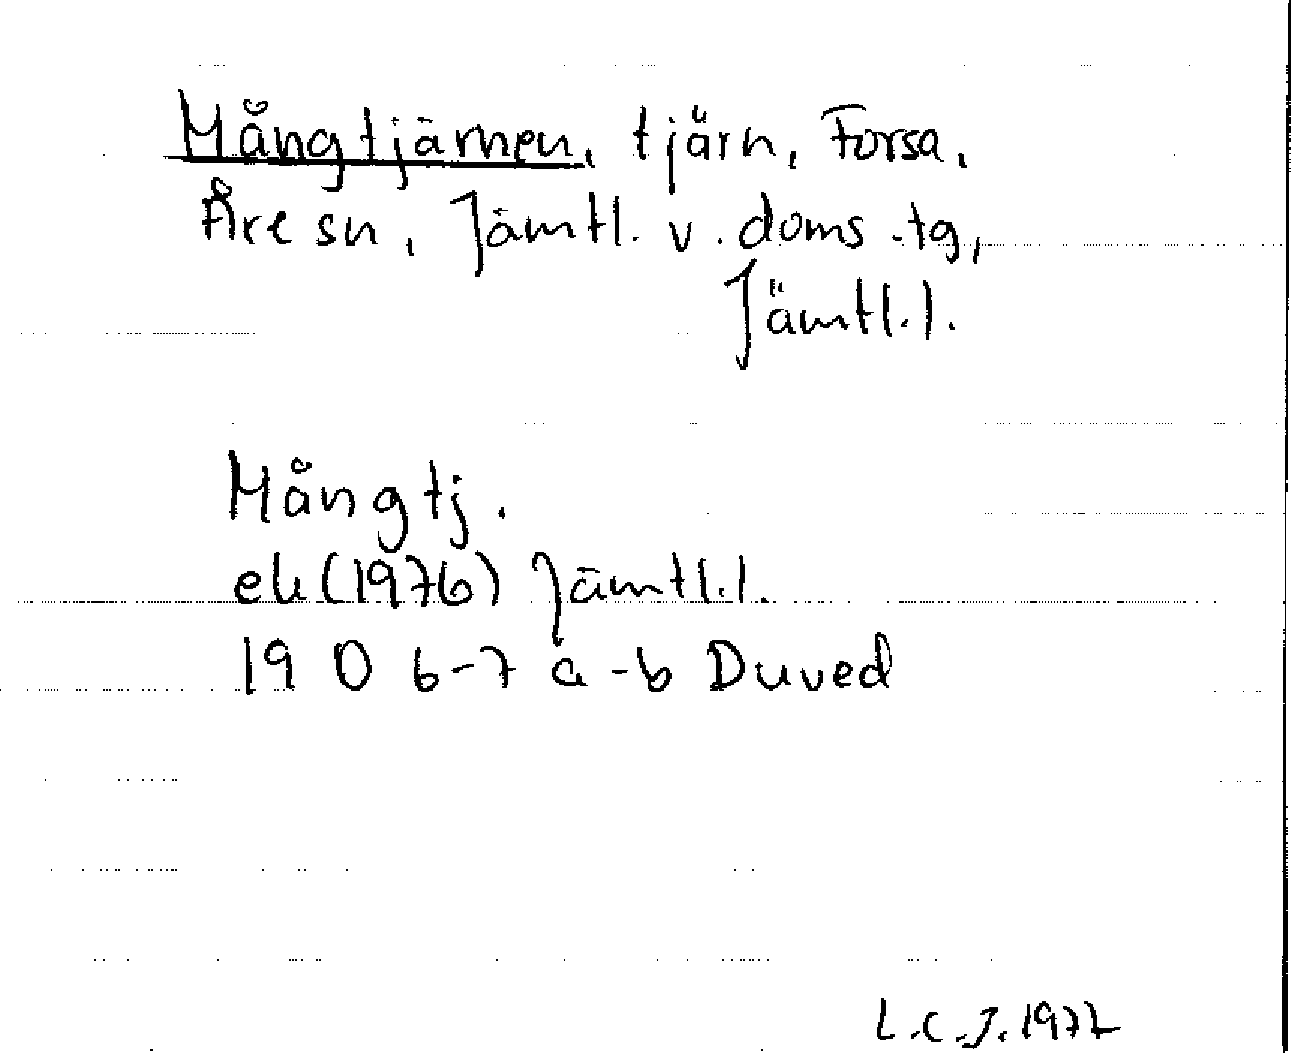 Mångtjärnen, tjärn, Forsa,
Åre sn, Jämtl. v. doms.tg,
Jämtl.l.
Mångtj.
ek (1976) Jämtl.l.
19 D 6-7 a-b Duved
L.C.J.